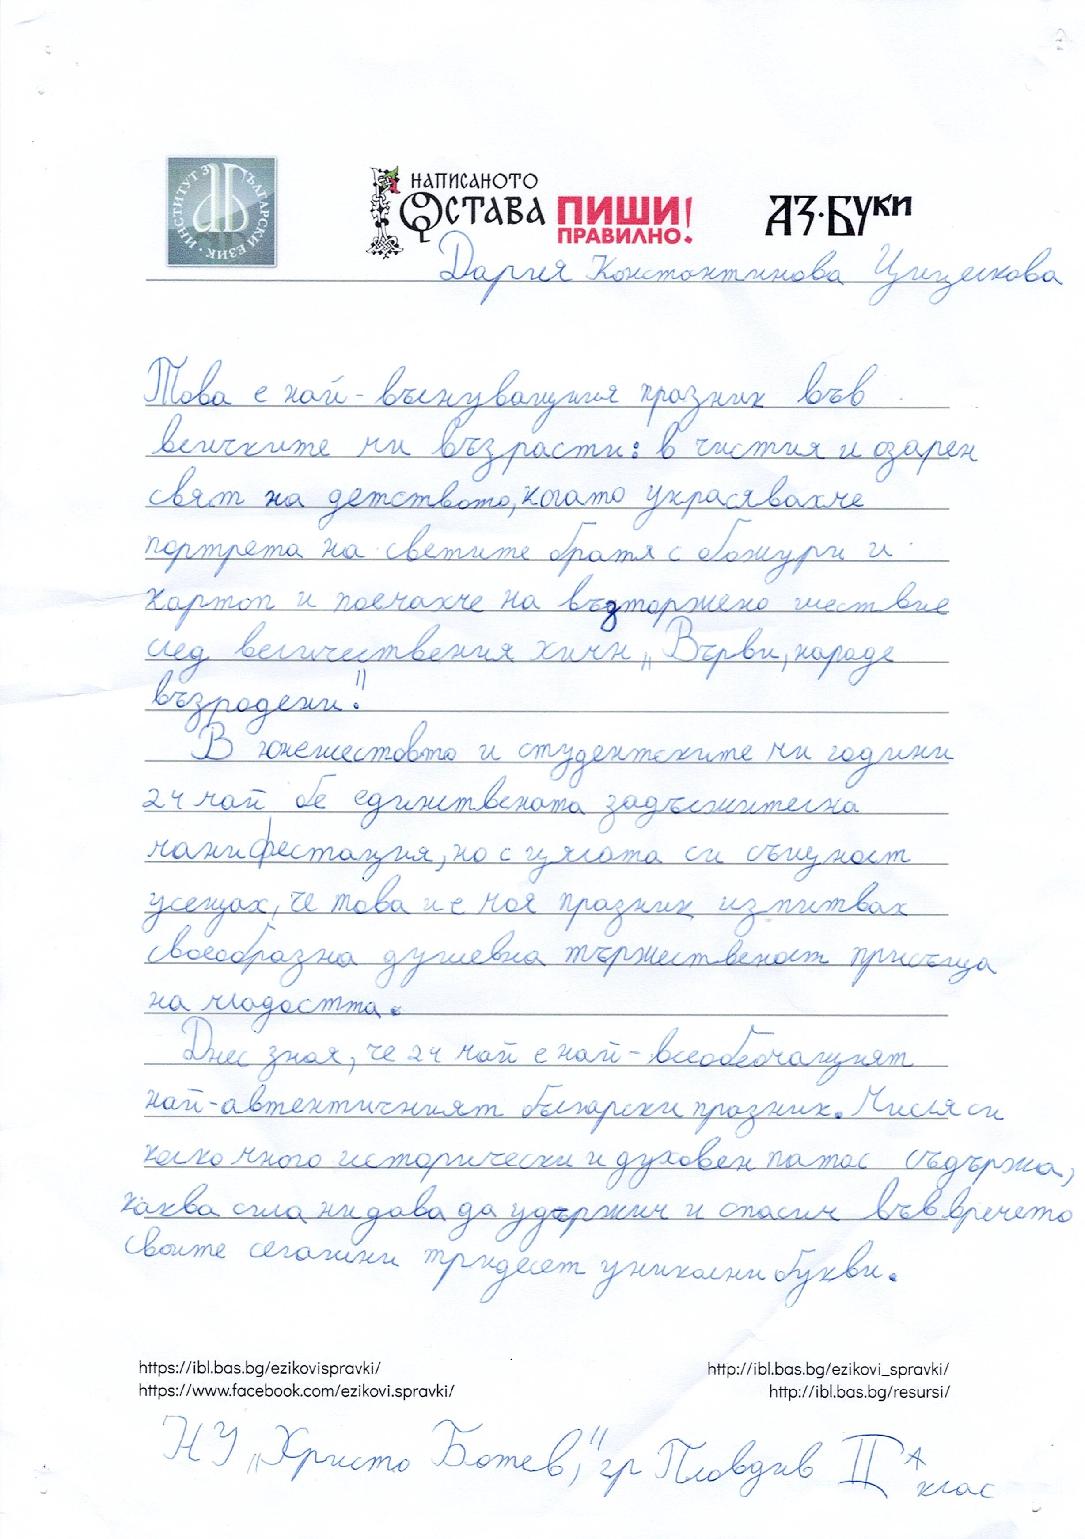 ИНСТИТУТ ЗА БЪЛГАРСКИ ЕЗИК
НАПИСАНОТО
ОСТАВА ПИШИ
ПРАВИЛНО!
АЗ·БУКИ
Дария Константинова
Това е най-вълнуващия празник във
всичките ми възрасти: в чистия и озарен
свят на детството, когато украсявахме
портрета на светите братя с божури и
картоп и поемахме на възторжено шествие
след величествения химн „Върви, народе
възродени."
В юнешестовто и студентските ми години
24 май бе единствената задължителна
манифестация, но с цялата си същност
усещах, че това и е моя празник изпитвах
своеобразна душевна тържественост присъща
на младостта.
Днес зная, че 24 май е най-всеобемащият
най-автентичният български празник. Мисля си
колко много исторически и духовен патос съдържа,
каква сила ни дава да удържим и спасим във времето
своите сегашни тридесет уникални букви.
https://ibl.bas.bg/ezikovispravki/
http://ibl.bas.bg/ezikovi_spravki/
https://www.facebook.com/ezikovi.spravki/
http://ibl.bas.bg/resursi/
НУ „Христо Ботев," гр Пловдив II А
клас